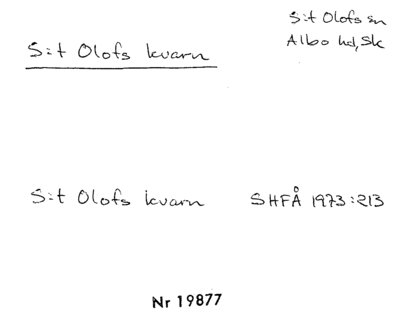 S:t Olofs kvarn
S:t Olofs sn
Albo hd, Sk
S:t Olofs kvarn
SHFÅ 1973:213
Nr 19877